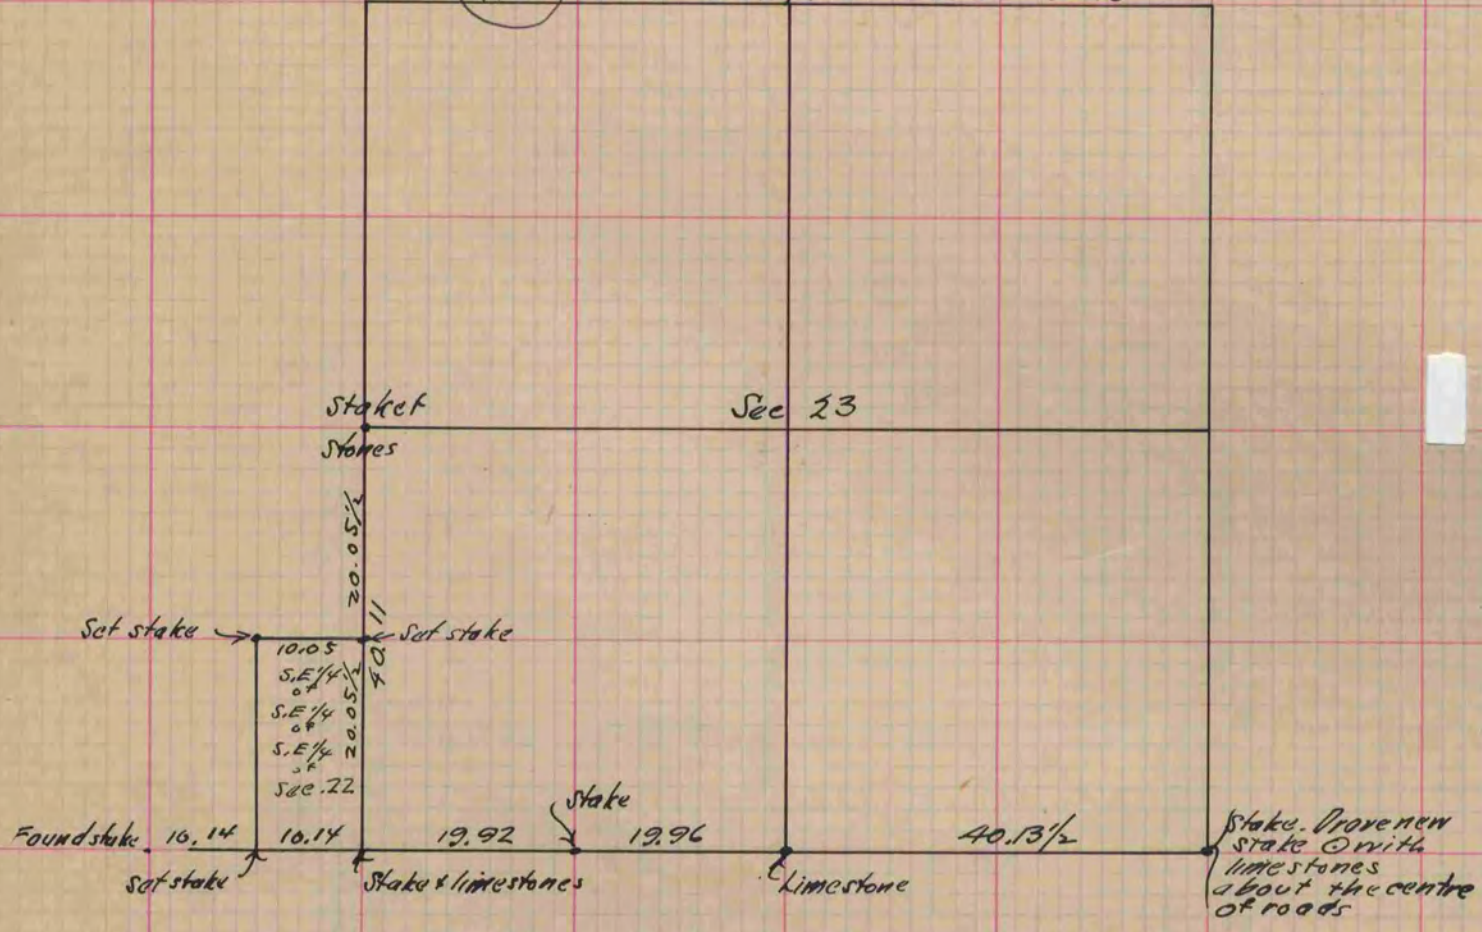 Stake &
Stones
Sec 23
20.05 1/2
40.11
Set stake
Set stake
10.05
S.E 1/4
of
S.E 1/4
of
S.E 1/4
of
Sec. 22
20.05 1/2
Stake
Found stake
10.14
10.14
19.92
19.96
40.13 1/2
Set stake
Stake & limestones
Limestone
Stake. Drove new
stake ⊙ with
limestones
about the centre
of roads